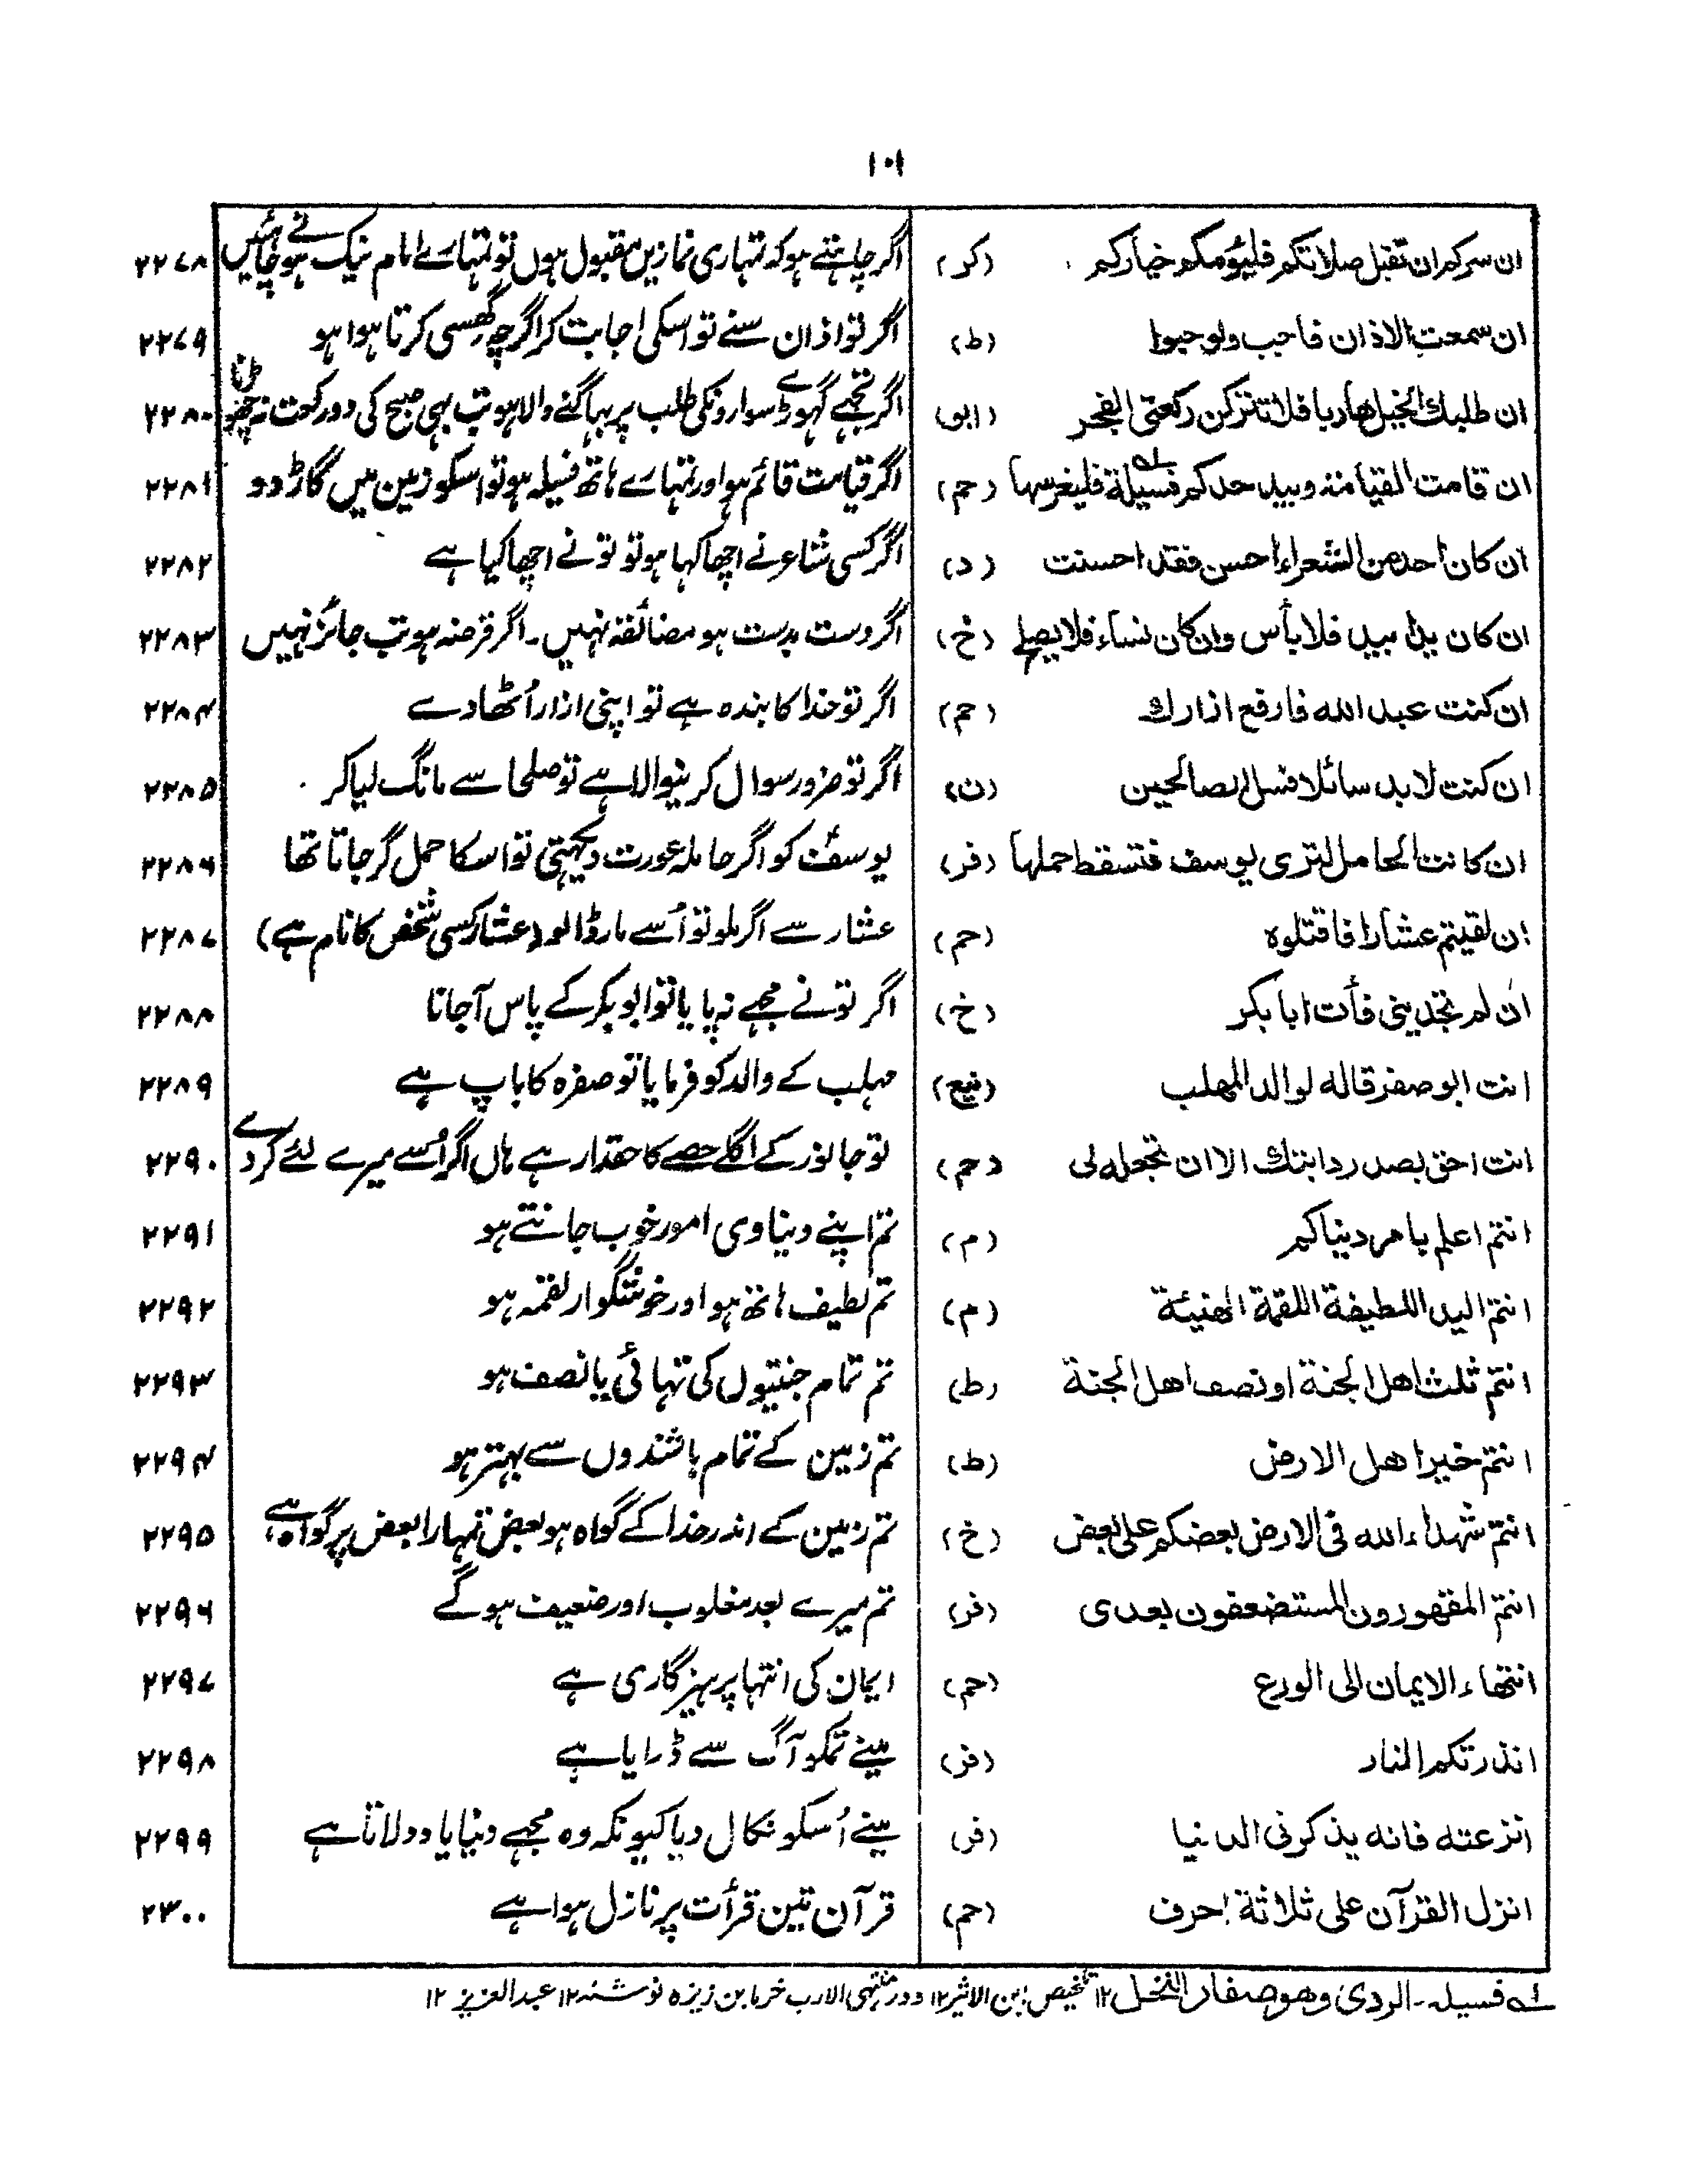 ۱۰۱
ان سرکم ان تقبل صلاتکم فلیؤمکم خیارکم (کر) اگر چاہتے ہو کہ تمہاری نمازیں مقبول ہوں تو تمہارے امام نیک ہونے چاہئیں ۲۲۷۸
ان سمعت الاذان فاجب ولو حبوا (ط) اگر تو اذان سنے تو اسکی اجابت کر اگرچہ گھسی کرتا ہوا ہو ۲۲۷۹
ان طلبك الخیل هاربا فلا تترکن رکعتی الفجر (ابو) اگر تجہے گہوڑے سوارونکی طلب پر بہاگنے والا ہو تب بہی صبح کی دو رکعت نہ چھوڑنا ۲۲۸۰
ان قامت القیامۃ وبید حدکم فسیلة فلیغرسها (حم) اگر قیامت قائم ہو اور تمہارے ہاتھ فسیلہ ہو تو اسکو زمین میں گاڑ دو ۲۲۸۱
ان کان احد من الشعراء احسن فقد احسنت (د) اگر کسی شاعر نے اچھا کہا ہو تو تو نے اچھا کیا ہے ۲۲۸۲
ان کان یدا بید فلا بأس وان کان نساء فلا یصلح (خ) اگر دست بدست ہو مضائقہ نہیں۔ اگر قرضہ ہو تب جائز نہیں ۲۲۸۳
ان کنت عبد الله فارفع ازارك (حم) اگر تو خدا کا بندہ ہے تو اپنی ازار اُٹھا دے ۲۲۸۴
ان کنت لابد سائلا فسل الصالحین (ن) اگر تو ضرور سوال کرنیوالا ہے تو صلحا سے مانگ لیا کر ۲۲۸۵
ان کانت الحامل لتری یوسف فتسقط حملها (فر) یوسف کو اگر حاملہ عورت دیکہتی تو اسکا حمل گر جاتا تھا ۲۲۸۶
ان لقیتم عشارا فاقتلوه (حم) عشار سے اگر ملو تو اُسے مار ڈالو (عشار کسی شخص کا نام ہے) ۲۲۸۷
ان لم تجدینی فأت ابا بکر (خ) اگر تو نے مجہے نہ پایا تو ابوبکر کے پاس آجانا ۲۲۸۸
انت ابو صفرة قاله لوالد المهلب مہلب کے والد کو فرمایا تو صفرہ کا باپ ہے ۲۲۸۹
انت احق بصدر دابتك الا ان تجعله لی (حم) تو جانور کے اگلے حصے کا حقدار ہے ہاں اگر اُسے میرے لئے کر دے ۲۲۹۰
انتم اعلم بامر دنیاکم (م) تم اپنے دنیاوی امور خوب جانتے ہو ۲۲۹۱
انتم الید اللطیفة اللقمة الهنیئة (م) تم لطیف ہاتھ ہو اور خوشگوار لقمہ ہو ۲۲۹۲
انتم ثلث اهل الجنة او نصف اهل الجنة (ط) تم تمام جنتیوں کی تہائی یا نصف ہو ۲۲۹۳
انتم خیر اهل الارض (ط) تم زمین کے تمام باشندوں سے بہتر ہو ۲۲۹۴
انتم شهداء الله فی الارض بعضکم علی بعض (خ) تم زمین کے اندر خدا کے گواہ ہو بعض تمہارا بعض پر گواہ ہے ۲۲۹۵
انتم المقهورون المستضعفون بعدی (فر) تم میرے بعد مغلوب اور ضعیف ہوگے ۲۲۹۶
انتهاء الایمان الی الورع (حم) ایمان کی انتہا پرہیزگاری ہے ۲۲۹۷
انذرتکم النار (فر) مینے تمکو آگ سے ڈرایا ہے ۲۲۹۸
انزعته فانه یذکرنی الدنیا (فر) مینے اُسکو نکال دیا کیونکہ وہ مجہے دنیا یاد دولاتا ہے ۲۲۹۹
انزل القرآن علی ثلاثة احرف (حم) قرآن تین قرأت پر نازل ہوا ہے ۲۳۰۰
لہ فسیلہ۔ الردی وهو صغار النخل ۱۲ تلخیص ابن الاثیر ۱۲ و در منتہی الارب خرما بن ریزہ نوشتہ ۱۲ عبدالعزیز ۱۲